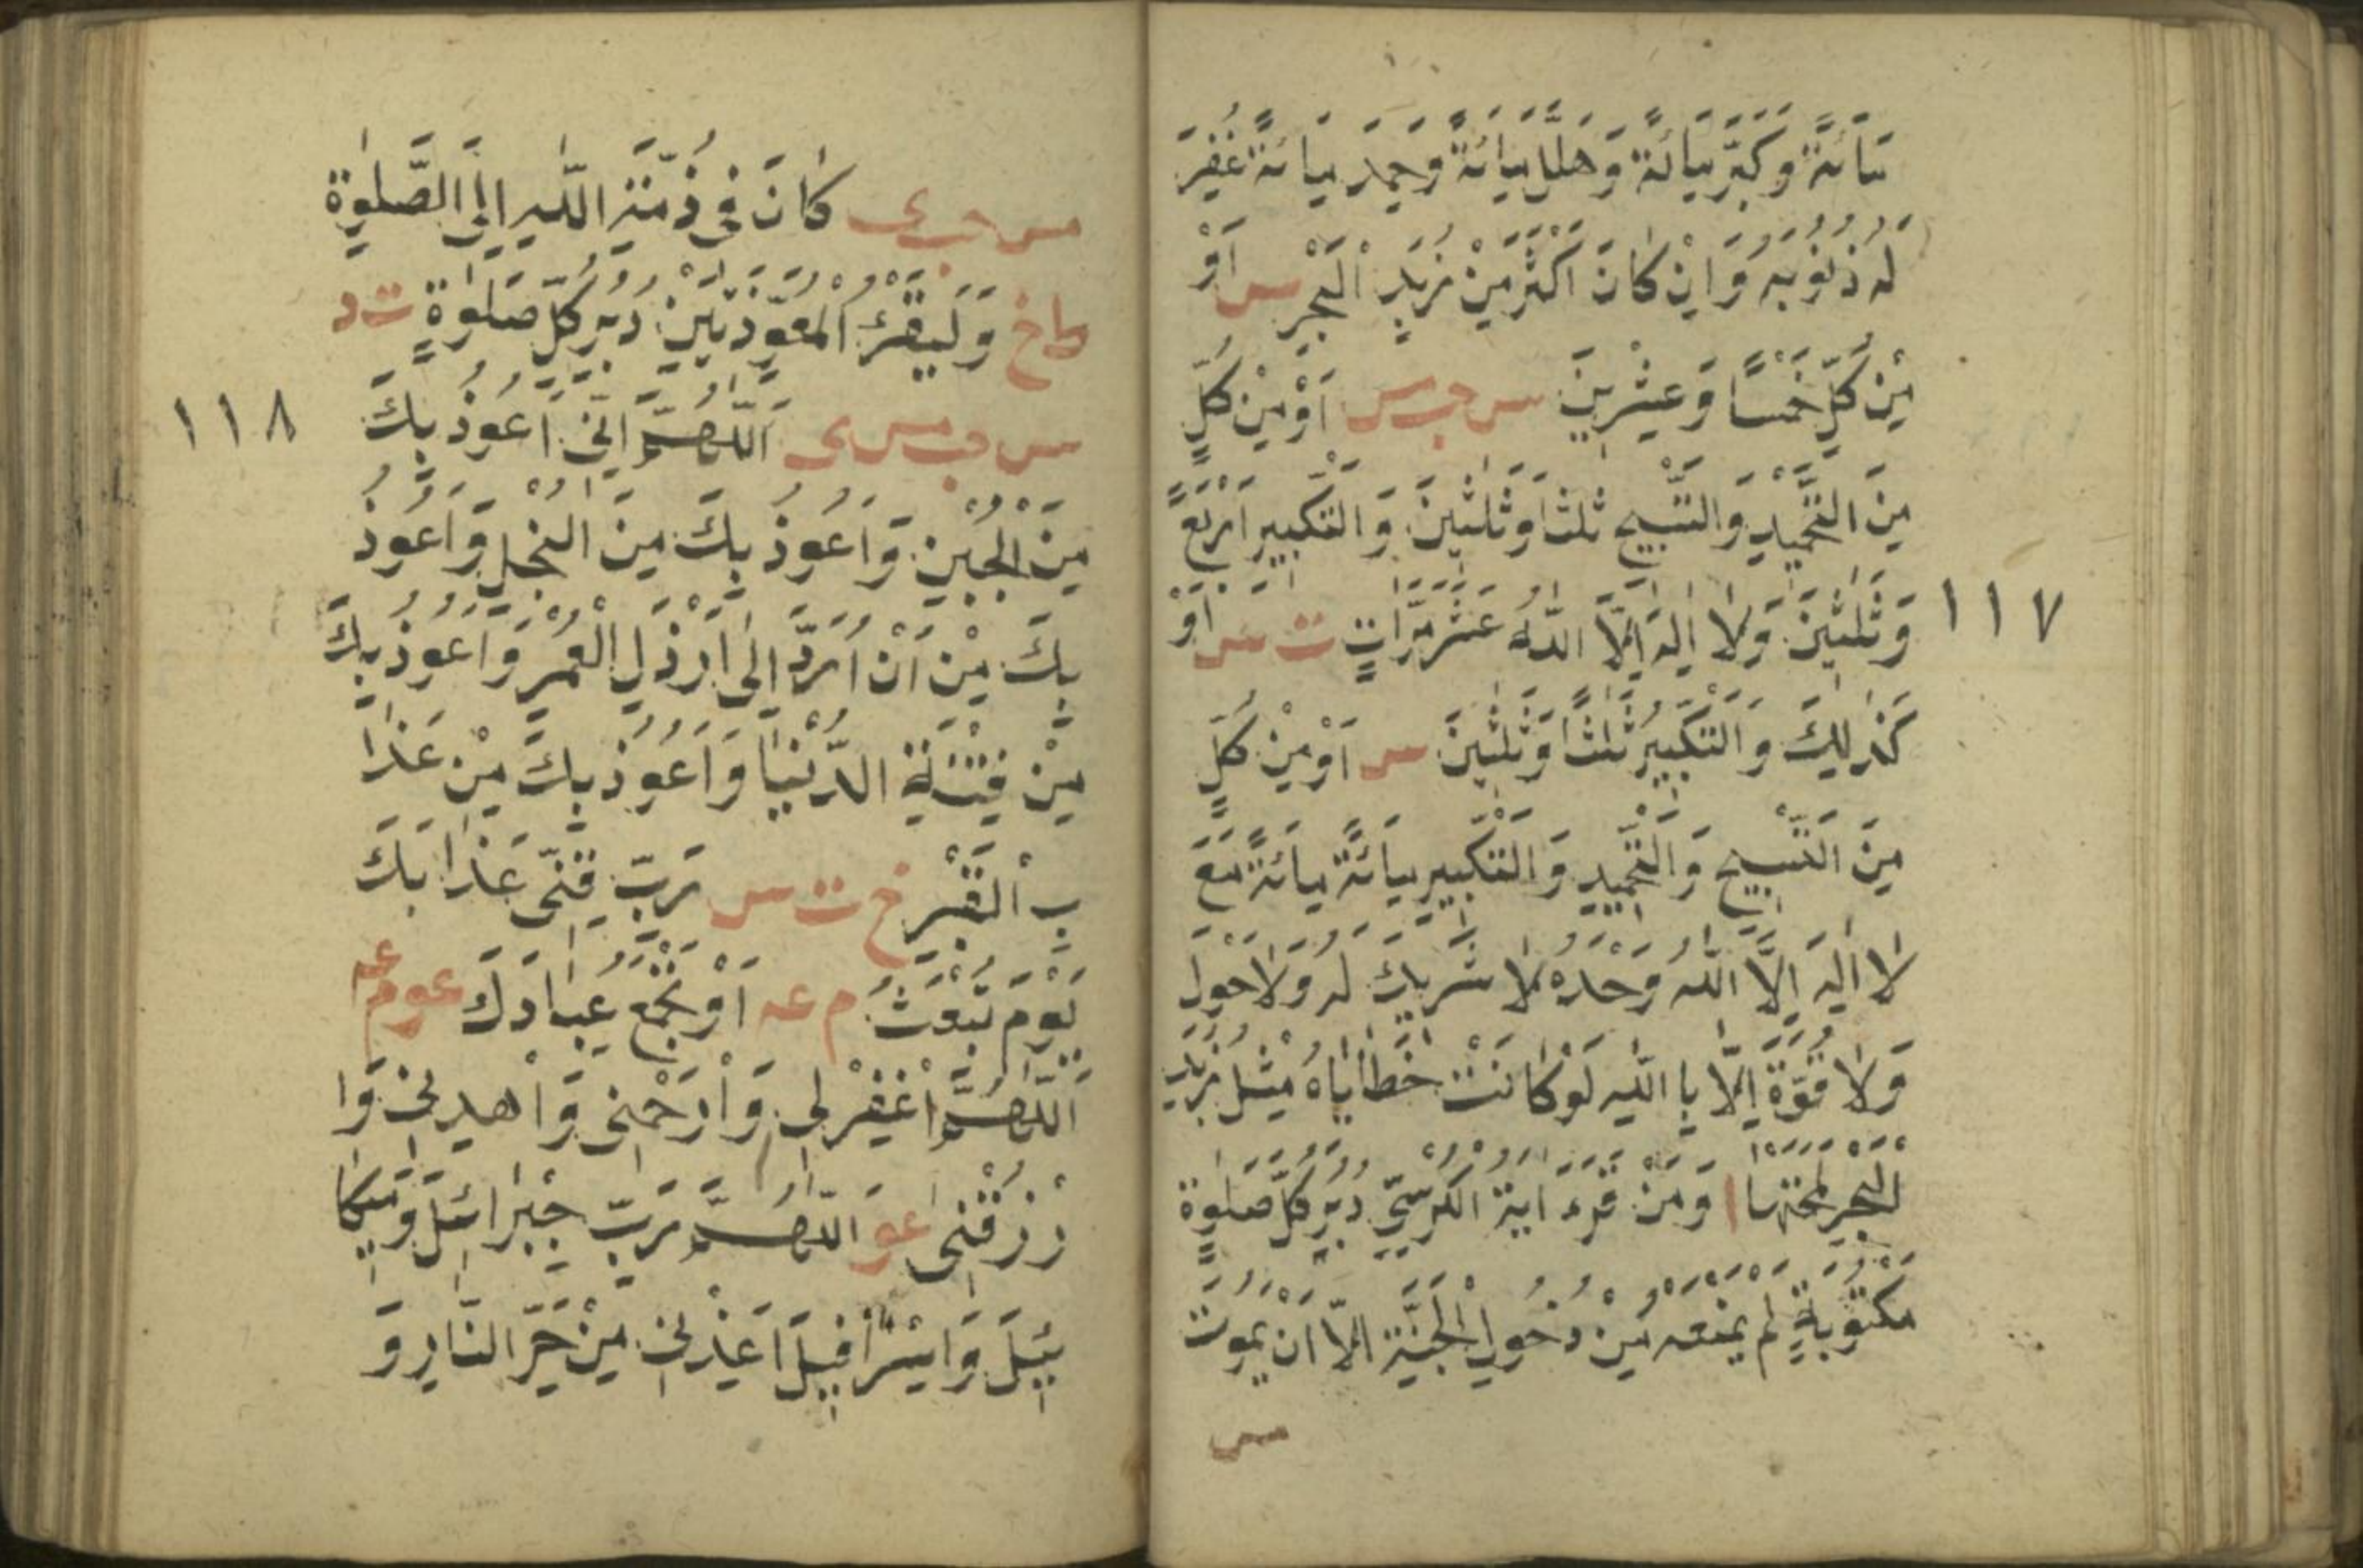 مِائَةً وَكَبَّرَ مِائَةً وَهَلَّلَ مِائَةً وَحَمِدَ مِائَةً غُفِرَ
لَهُ ذُنُوبُهُ وَاِنْ كَانَ اَكْثَرَ مِنْ زَبَدِ الْبَحْرِ س اَوْ
مِنْ كُلٍّ خَمْسًا وَعِشْرِينَ س حب مس اَوْ مِنْ كُلٍّ
مِنَ التَّحْمِيدِ وَالتَّسْبِيحِ ثَلٰثًا وَثَلٰثِينَ وَالتَّكْبِيرِ اَرْبَعً
١١٧
وَثَلٰثِينَ وَلَا اِلٰهَ اِلَّا اللّٰهُ عَشْرَ مَرَّاتٍ ت س اَوْ
كَذٰلِكَ وَالتَّكْبِيرُ ثَلٰثًا وَثَلٰثِينَ س اَوْ مِنْ كُلٍّ
مِنَ التَّسْبِيحِ وَالتَّحْمِيدِ وَالتَّكْبِيرِ مِائَةً مِائَةً مَعَ
لَا اِلٰهَ اِلَّا اللّٰهُ وَحْدَهُ لَا شَرِيكَ لَهُ وَلَا حَوْلَ
وَلَا قُوَّةَ اِلَّا بِاللّٰهِ لَوْ كَانَتْ خَطَايَاهُ مِثْلَ زَبَدِ
الْبَحْرِ لَمَحَتْهَا ا وَمَنْ قَرَءَ اٰيَةَ الْكُرْسِيِّ دُبُرَ كُلِّ صَلٰوةٍ
مَكْتُوبَةٍ لَمْ يَمْنَعْهُ مِنْ دُخُولِ الْجَنَّةِ اِلَّا اَنْ يَمُوتَ
س
مس حب ى كَانَ فِى ذِمَّةِ اللّٰهِ اِلَى الصَّلٰوةِ
ط اخ وَلْيَقْرَءْ الْمُعَوِّذَتَيْنِ دُبُرَ كُلِّ صَلٰوةٍ ت د
س حب مس ى اَللّٰهُمَّ اِنِّى اَعُوذُ بِكَ
١١٨
مِنَ الْجُبْنِ وَاَعُوذُ بِكَ مِنَ الْبُخْلِ وَاَعُوذُ
بِكَ مِنْ اَنْ اُرَدَّ اِلٰى اَرْذَلِ الْعُمْرِ وَاَعُوذُ بِكَ
مِنْ فِتْنَةِ الدُّنْيَا وَاَعُوذُ بِكَ مِنْ عَذَا
بِ الْقَبْرِ خ ت س رَبِّ قِنِى عَذَابَكَ
يَوْمَ تَبْعَثُ م عه اَوْ تَجْمَعُ عِبَادَكَ عو م عه
اَللّٰهُمَّ اغْفِرْ لِى وَارْحَمْنِى وَاهْدِنِى وَا
رْزُقْنِى عو اَللّٰهُمَّ رَبَّ جِبْرَائِيلَ وَمِيكَا
ئِيلَ وَاِسْرَافِيلَ اَعِذْنِى مِنْ حَرِّ النَّارِ وَ